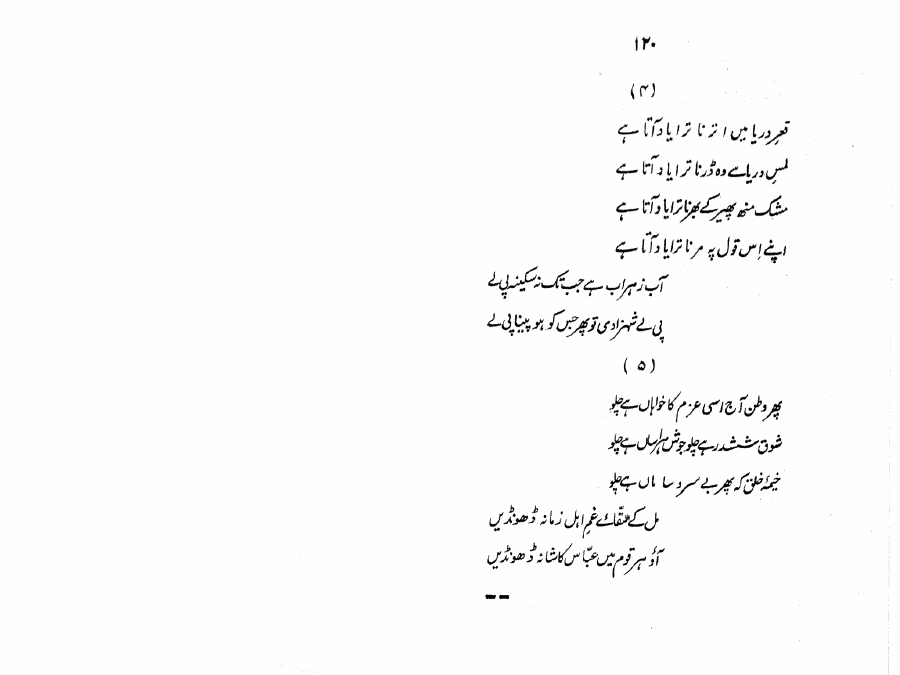 ۱۲۰
(۴)
قعرِ دریا میں اترنا ترا یاد آتا ہے
لمسِ دریا سے وہ ڈرنا ترا یاد آتا ہے
مشک منھ پھیر کے بھرنا ترا یاد آتا ہے
اپنے اِس قول پہ مرنا ترا یاد آتا ہے
آب زہراب ہے جب تک نہ سکینہ پی لے
پی لے شہزادی تو پھر جس کو ہو پینا پی لے
(۵)
پھر وطن آج اسی عزم کا خواہاں ہے چلو
شوق ششدر ہے چلو جوش ہراساں ہے چلو
خیمۂ خلق کہ پھر بے سر و ساماں ہے چلو
مل کے سقّائے غمِ اہلِ زمانہ ڈھونڈیں
آؤ ہر قوم میں عبّاس کا شانہ ڈھونڈیں